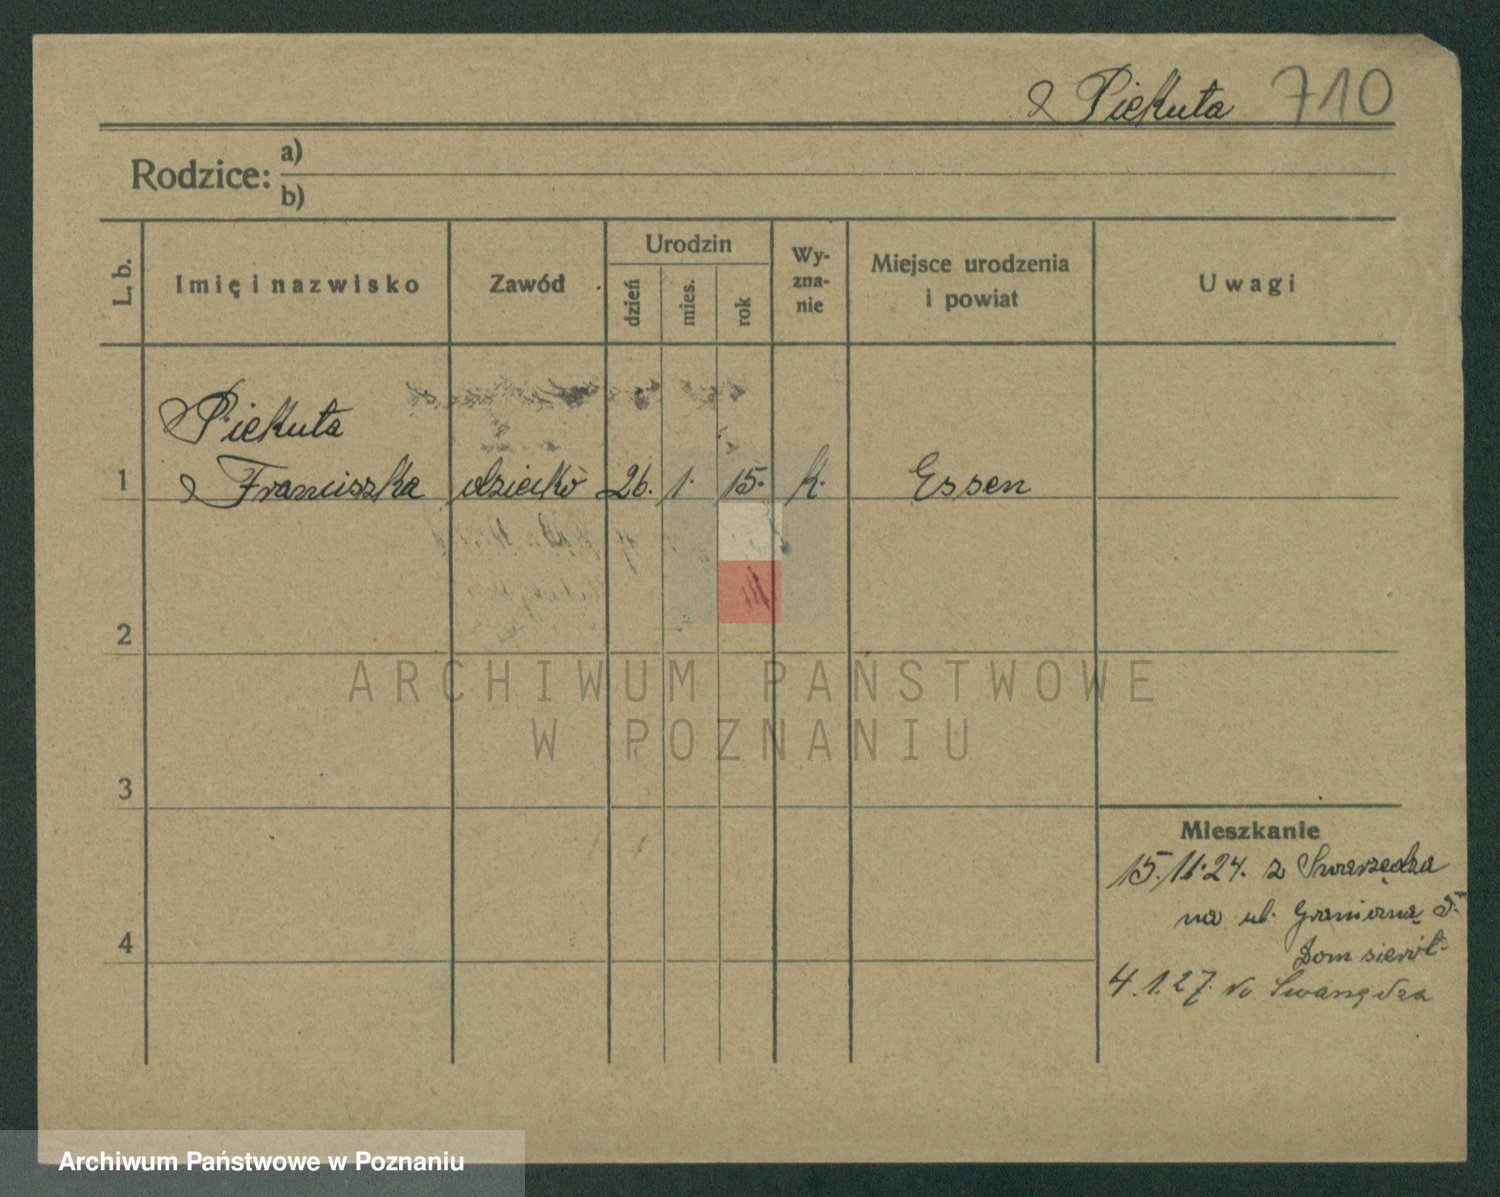 Piekuta 710
Rodzice: a)
b)
L. b.
Imię i nazwisko
Zawód
Urodzin
dzień
mies.
rok
Wy-
zna-
nie
Miejsce urodzenia
i powiat
Uwagi
Piekuta
1 Franciszka dziecko 26. 1. 15. k. Essen
2
3
4
Mieszkanie
15.11.24. z Swarzędza
na ul. Graniczną
Dom sierót
4.1.27. do Swarzędza
ARCHIWUM PAŃSTWOWE
W POZNANIU
Archiwum Państwowe w Poznaniu